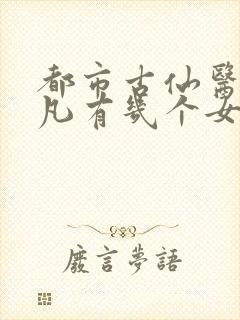 都市古仙醫
凡有幾个女
廢言夢語